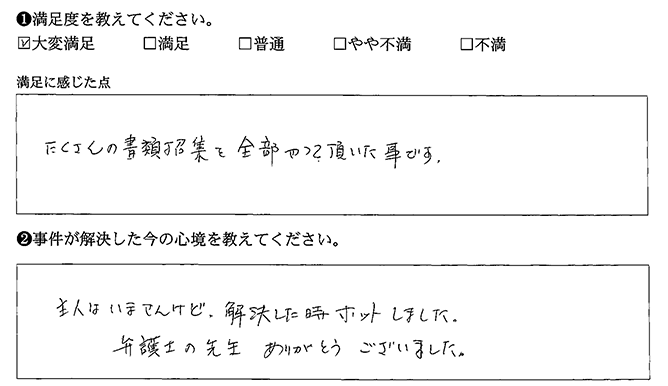 ❶満足度を教えてください。
☑大変満足 □満足 □普通 □やや不満 □不満
満足に感じた点
たくさんの書類招集を全部やって頂いた事です。
❷事件が解決した今の心境を教えてください。
主人はいませんけど、解決した時ホットしました。
弁護士の先生 ありがとう ございました。